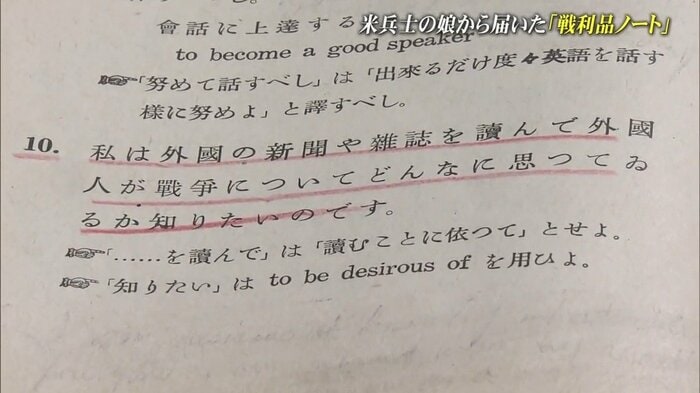 米兵士の娘から届いた「戦利品ノート」
會話に上達する
to become a good speaker
「努めて話すべし」は「出來るだけ度々英語を話す
樣に努めよ」と譯すべし。
10. 私は外國の新聞や雜誌を讀んで外國
人が戰爭についてどんなに思つてゐ
るか知りたいのです。
「……を讀んで」は「讀むことに依つて」とせよ。
「知りたい」は to be desirous of を用ひよ。